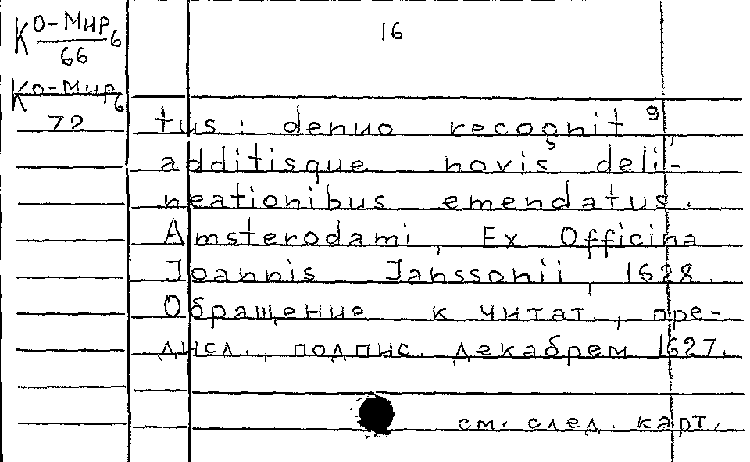 Ко-Мир6
66
16
Ко-Мир6
72
tus: denuo recognit,
additisque novis deli-
neationibus emendatus.
Amsterodami, Ex Officina
Joannis Janssonii, 1628.
Обращение к читат., пре-
дисл., подпис. декабрем 1627.
см. след. карт.